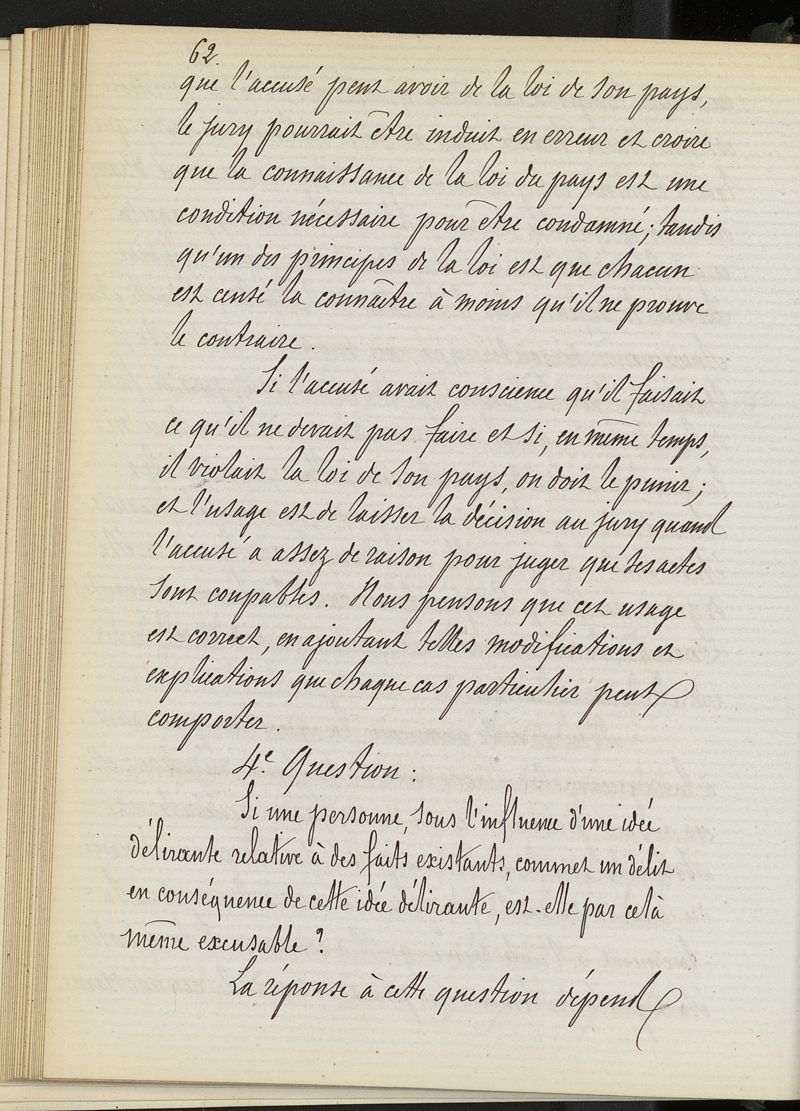 62
que l'accusé peut avoir de la loi de son pays,
le jury pourrait être induit en erreur et croire
que la connaissance de la loi du pays est une
condition nécessaire pour être condamné; tandis
qu'un des principes de la loi est que chacun
est censé la connaître à moins qu'il ne prouve
le contraire.
Si l'accusé avait conscience qu'il faisait
ce qu'il ne devait pas faire et si, en même temps,
il violait la loi de son pays, on doit le punir;
et l'usage est de laisser la décision au jury quand
l'accusé a assez de raison pour juger que ses actes
sont coupables. Nous pensons que cet usage
est correct, en ajoutant telles modifications et
explications que chaque cas particulier peut
comporter.
4e Question:
Si une personne, sous l'influence d'une idée
délirante relative à des faits existants, commet un délit
en conséquence de cette idée délirante, est-elle par celà
même excusable?
La réponse à cette question dépend